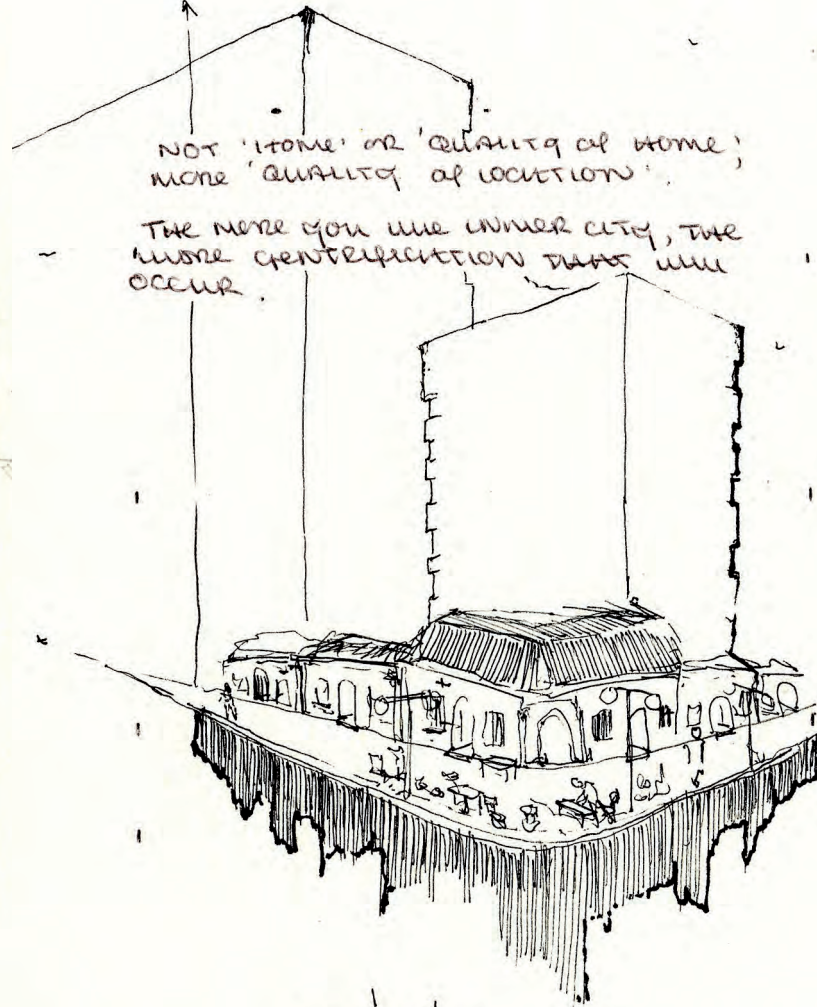 NOT 'HOME' OR 'QUALITY OF HOME;
MORE 'QUALITY OF LOCATION'.
THE MORE YOU LIVE INNER CITY, THE
MORE GENTRIFICATION THAT WILL
OCCUR.